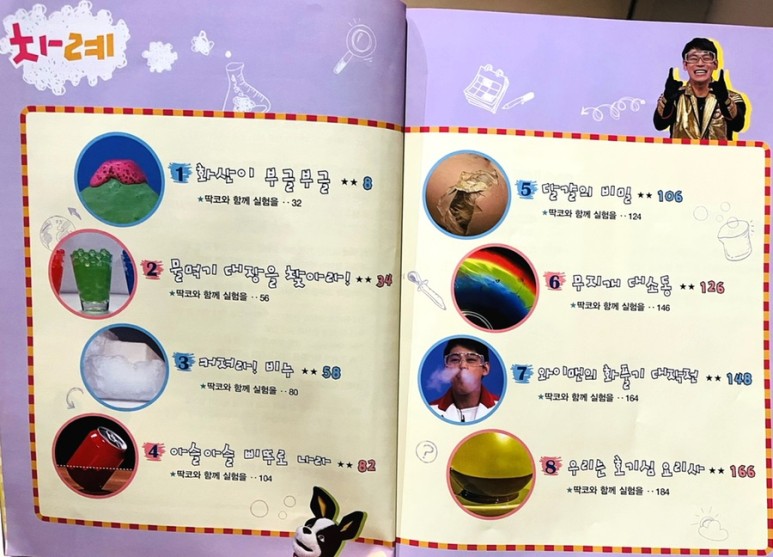 차례
1 화산이 부글부글 ★★ 8
★딱코와 함께 실험을 ‥ 32
2 물먹기 대장을 찾아라! ★★ 34
★딱코와 함께 실험을 ‥ 56
3 커져라! 비누 ★★ 58
★딱코와 함께 실험을 ‥ 80
4 아슬아슬 삐뚜로 나라 ★★ 82
★딱코와 함께 실험을 ‥ 104
5 달걀의 비밀 ★★ 106
★딱코와 함께 실험을 ‥ 124
6 무지개 대소동 ★★ 126
★딱코와 함께 실험을 ‥ 146
7 와이맨의 화풀기 대작전 ★★ 148
★딱코와 함께 실험을 ‥ 164
8 우리는 호기심 요리사 ★★ 166
★딱코와 함께 실험을 ‥ 184